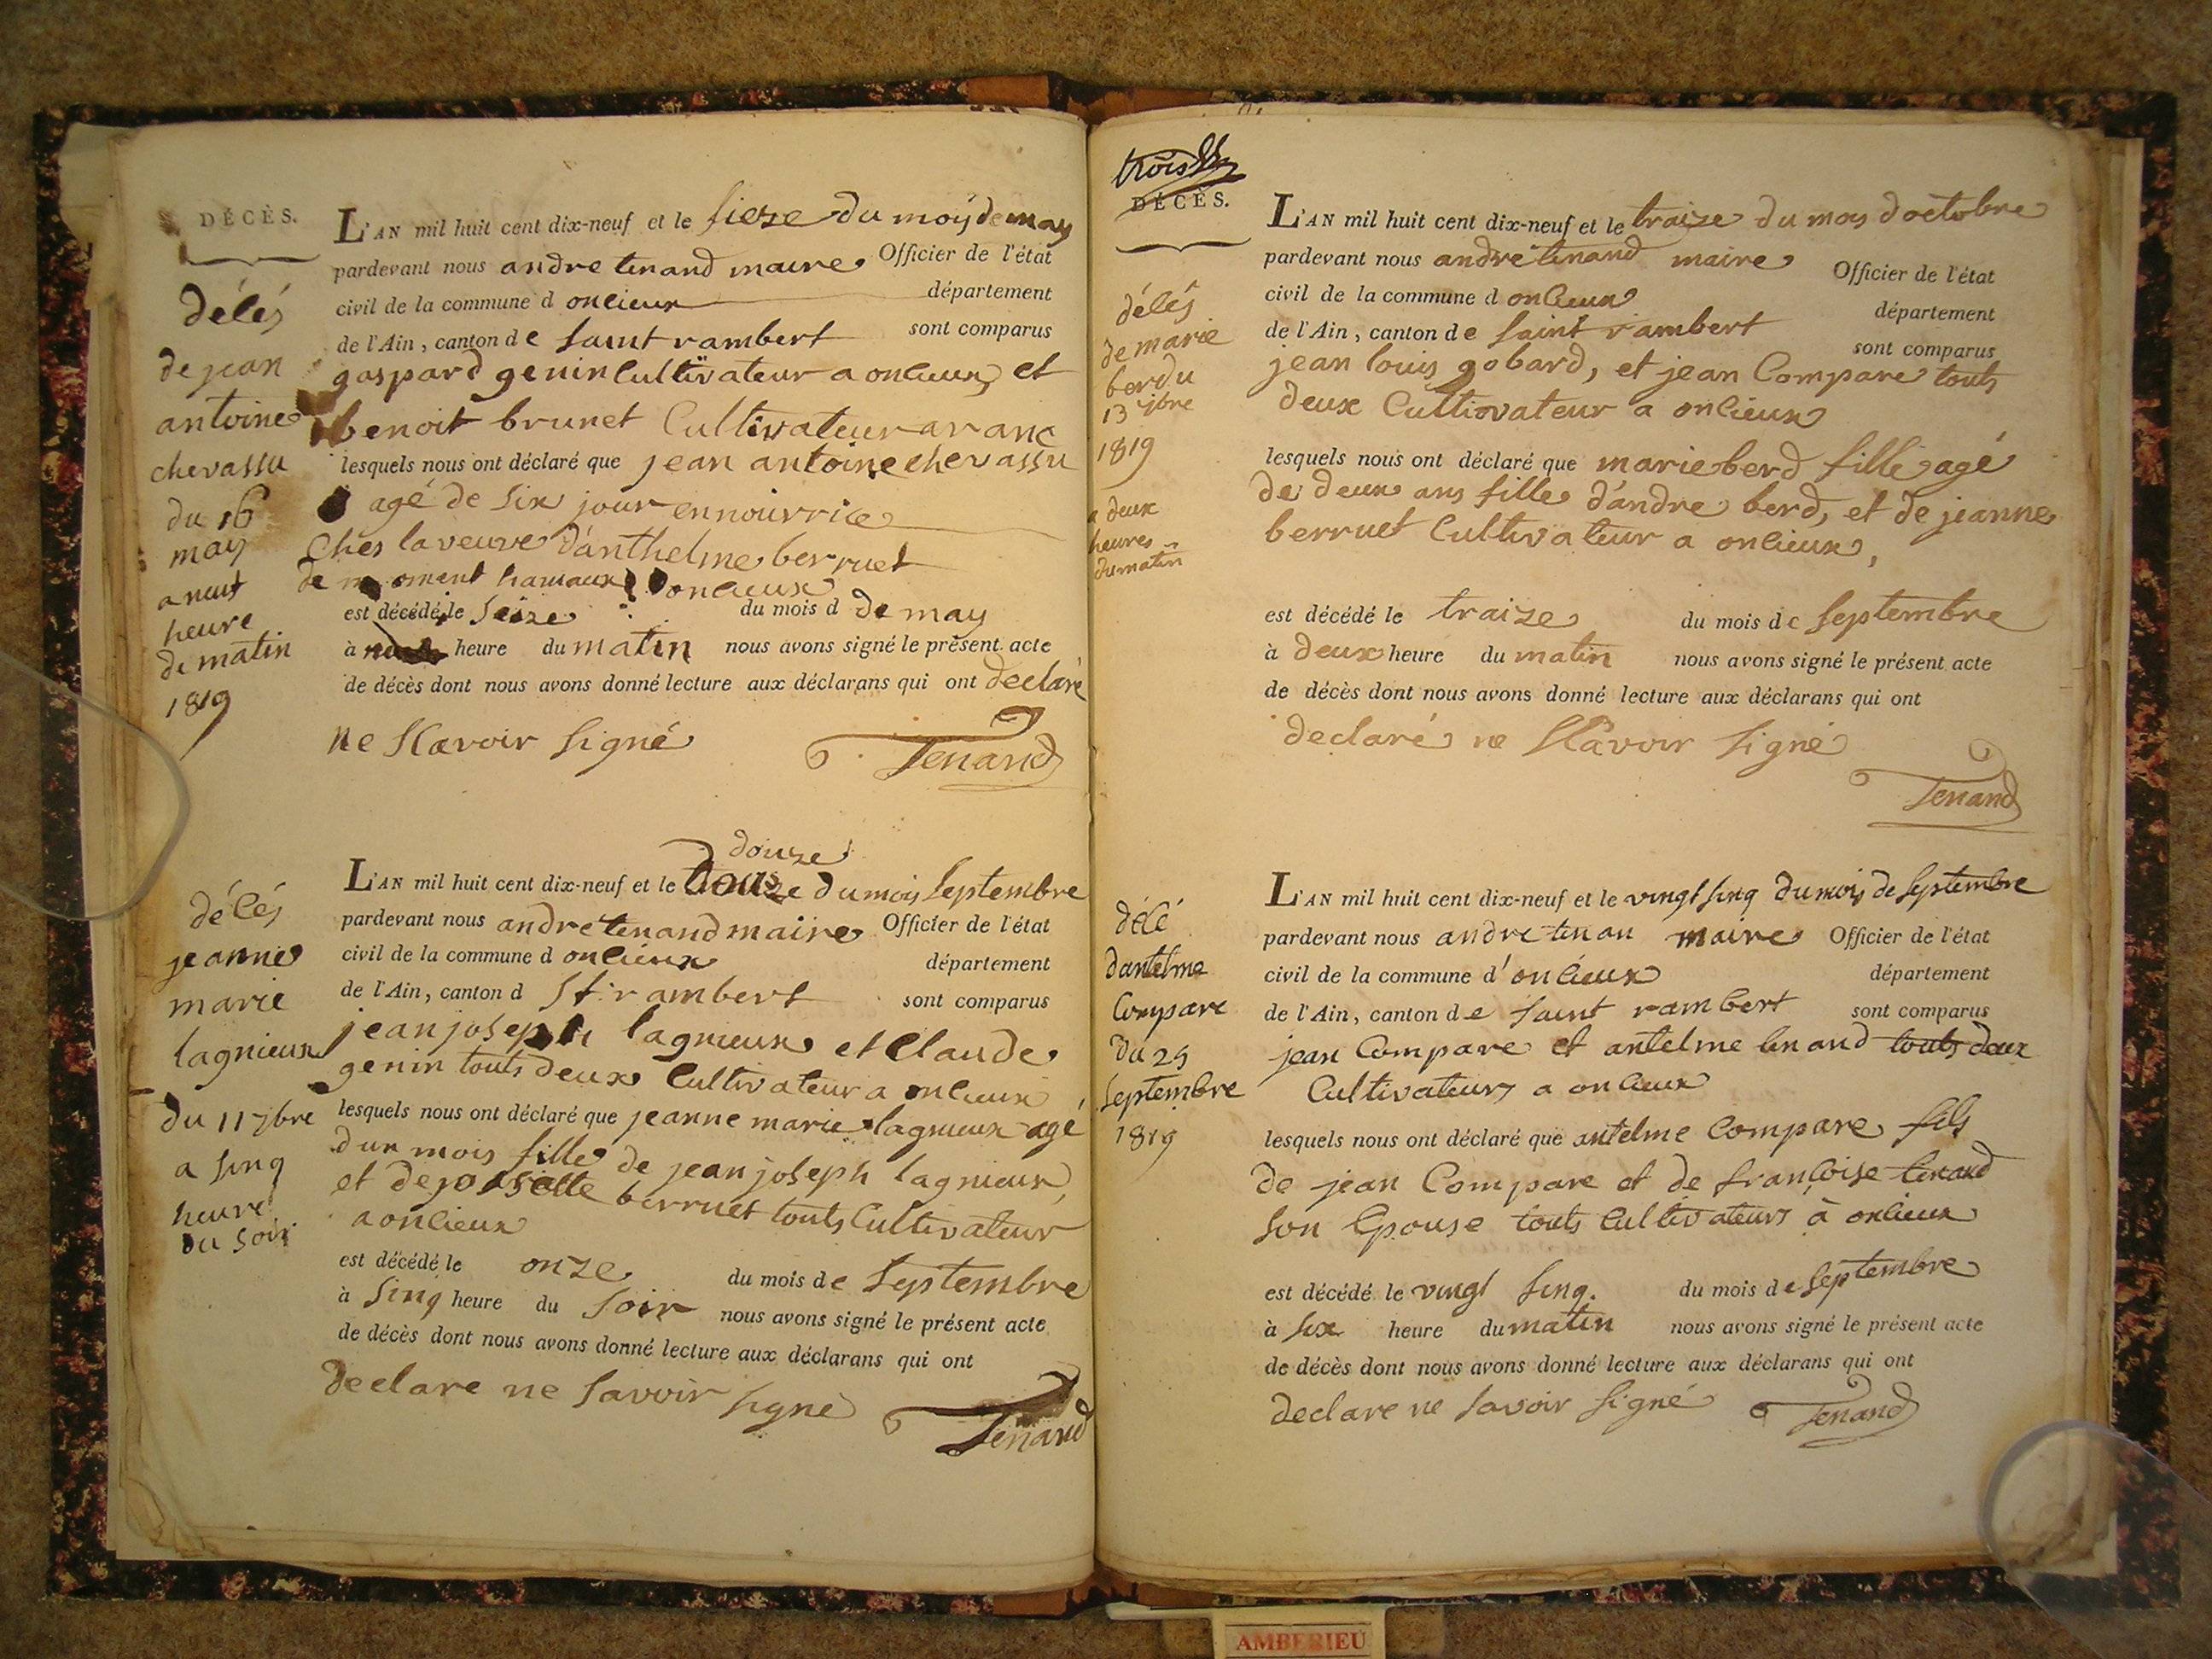 DÉCÈS.
délés
de jean
antoine
chevassu
du 16
may
a neuf
heure
de matin
1819
L'AN mil huit cent dix-neuf et le sieze du moÿ de may
pardevant nous andre tenand maire Officier de l'état
civil de la commune d onlieux département
de l'Ain, canton de saint rambert sont comparus
gaspard genin Cultivateur a onlieux, et
benoit brunet Cultivateur aranc
lesquels nous ont déclaré que jean antoine chevassu
agé de six jour ennourrice
Ches la veuve d'anthelme berruet
de moment hamaux onlieux
est décédé le seize du mois d de may
à heure du matin nous avons signé le présent acte
de décès dont nous avons donné lecture aux déclarans qui ont declaré
ne Scavoir signé
Tenand
délés
jeanne
marie
lagnieux
du 11 7bre
a sinq
heure
du soir
douze
L'AN mil huit cent dix-neuf et le du mois septembre
pardevant nous andre tenand maire Officier de l'état
civil de la commune d onlieux département
de l'Ain, canton d St rambert sont comparus
jean joseph lagnieux et Claude
genin touts deux Cultivateur a onlieux
lesquels nous ont déclaré que jeanne marie lagnieux agé
dun mois fille de jean joseph lagnieux,
et de berruet touts Cultivateur
a onlieux
est décédé le onze du mois de septembre
à sinq heure du soir nous avons signé le présent acte
de décès dont nous avons donné lecture aux déclarans qui ont
declare ne savoir signe
Tenand
DÉCÈS.
délés
de marie
berdu
13 7bre
1819
a deux
heures
du matin
L'AN mil huit cent dix-neuf et le traize du moys doctobre
pardevant nous andre tenand maire Officier de l'état
civil de la commune d onlieux département
de l'Ain, canton de saint rambert sont comparus
jean louis gobard, et jean Compare touts
deux Cultivateur a onlieux
lesquels nous ont déclaré que marie berd fille agé
de deux ans fille d'andre berd, et de jeanne
berruet Cultivateur a onlieux,
est décédé le traize du mois de septembre
à deux heure du matin nous avons signé le présent acte
de décès dont nous avons donné lecture aux déclarans qui ont
declaré ne Scavoir signé
Tenand
délé
dantelme
Compare
du 25
septembre
1819
L'AN mil huit cent dix-neuf et le vingt sinq du mois de septembre
pardevant nous andre tenan maire Officier de l'état
civil de la commune d'onlieux département
de l'Ain, canton de saint rambert sont comparus
jean Compare et antelme tenand touts deux
Cultivateurs a onlieux
lesquels nous ont déclaré que antelme Compare fils
de jean Compare et de françoise tenand
son Epouse touts Cultivateurs à onlieux
est décédé le vingt sinq. du mois de septembre
à six heure du matin nous avons signé le présent acte
de décès dont nous avons donné lecture aux déclarans qui ont
declare ne savoir signé
Tenand
AMBERIEU